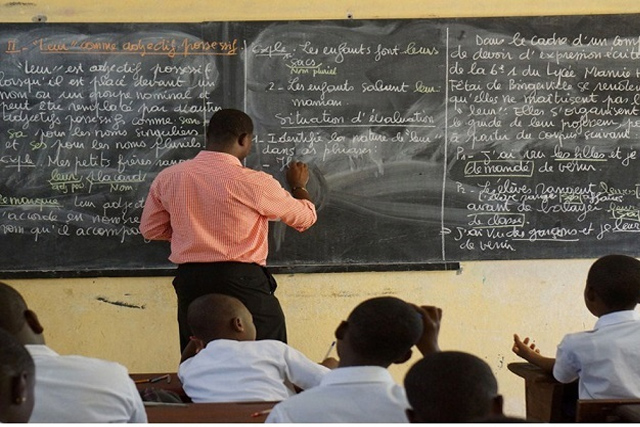 II - "Leur" comme adjectif possessif
"Leur" est adjectif possessif
lorsqu'il est placé devant un
nom ou un groupe nominal et
peut être remplacé par d'autres
adjectifs possessifs comme son
sa pour les noms singuliers
et ses pour les noms pluriels
Exple : Mes petits frères rangent
leur placard
Nom
Remarque leur adjectif
s'accorde en nombre
nom qu'il accompagne
Exple : Les enfants font leurs
sacs
Nom pluriel
2 - Les enfants saluent leur
maman
Situation d'évaluation
1 - Identifie la nature de "leur"
dans ces phrases:
Dans le cadre d'un
de devoir d'expression écrite
de la 6e 1 du Lycée Mamie
Fêtai de Bingerville se rendent
qu'elles ne maîtrisent pas
"leur". Elles s'organisent
la guide de leur professeur
à partir du corpus suivant
P1 - J'ai vu les filles et je
demandé de venir.
P2 - Les élèves rangent leurs
L'élève range ses affaires
avant de balayer
classe.
J'ai vu des garçons et je leur
de venir